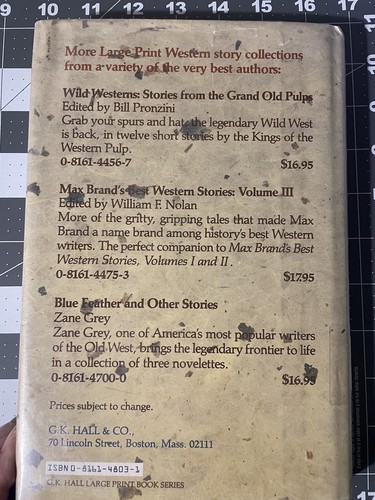 9 10 11 12 13 14 15 16 17
More Large Print Western story collections
from a variety of the very best authors:
Wild Westerns: Stories from the Grand Old Pulps
Edited by Bill Pronzini
Grab your spurs and hat, the legendary Wild West
is back, in twelve short stories by the Kings of the
Western Pulp.
0-8161-4456-7 $16.95
Max Brand's Best Western Stories: Volume III
Edited by William F. Nolan
More of the gritty, gripping tales that made Max
Brand a name brand among history's best Western
writers. The perfect companion to Max Brand's Best
Western Stories, Volumes I and II.
0-8161-4475-3 $17.95
Blue Feather and Other Stories
Zane Grey
Zane Grey, one of America's most popular writers
of the Old West, brings the legendary frontier to life
in a collection of three novelettes.
0-8161-4700-0 $16.95
Prices subject to change.
G.K. HALL & CO.,
70 Lincoln Street, Boston, Mass. 02111
ISBN 0-8161-4803-1
G.K. HALL LARGE PRINT BOOK SERIES